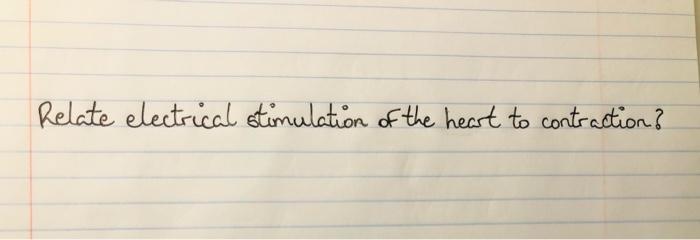 Relate electrical stimulation of the heart to contraction?